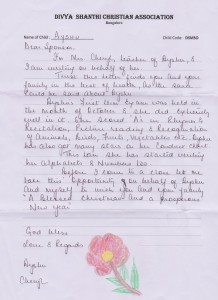 DIVYA SHANTHI CHRISTIAN ASSOCIATION
Bangalore
Name of Child: Ayshu Child Code:
Dear Sponsor,
I'm Mrs Cheryl, teacher of Ayshu, &
I am writing on behalf of her.
Trust this letter finds you and your
family in the best of health, as the same
could be said about Ayshu.
Ayshu's first term exam was held in
the month of October & she did extremely
well in it. She scored 'A's in Rhymes &
Recitation, Picture reading & Recognition
of Animals, Birds, Fruits, Vegetables etc. Ayshu
has also got many stars on her conduct chart.
This term she has started writing
her alphabets & Numbers too.
Before I come to a close let me
take this opportunity on behalf of Ayshu
and myself to wish you and your family
"A Blessed Christmas and a prosperous
New year"
God Bless
Love & Regards
Ayshu
Cheryl